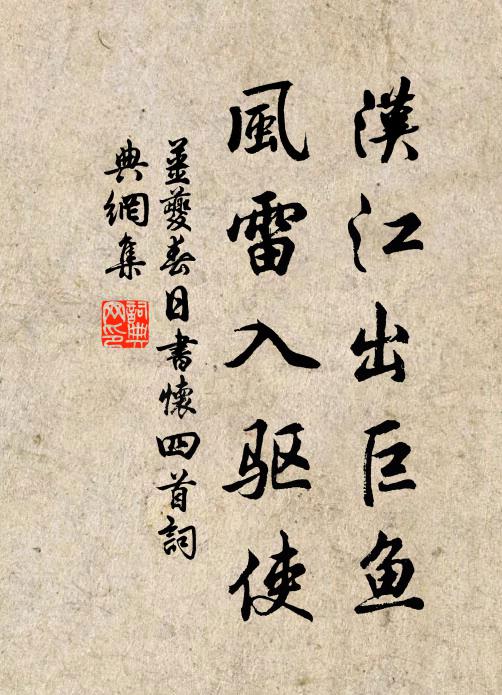 漢江出巨鱼
風雷入驱使
姜夔春日書懷四首詞
典網集
詞典網印